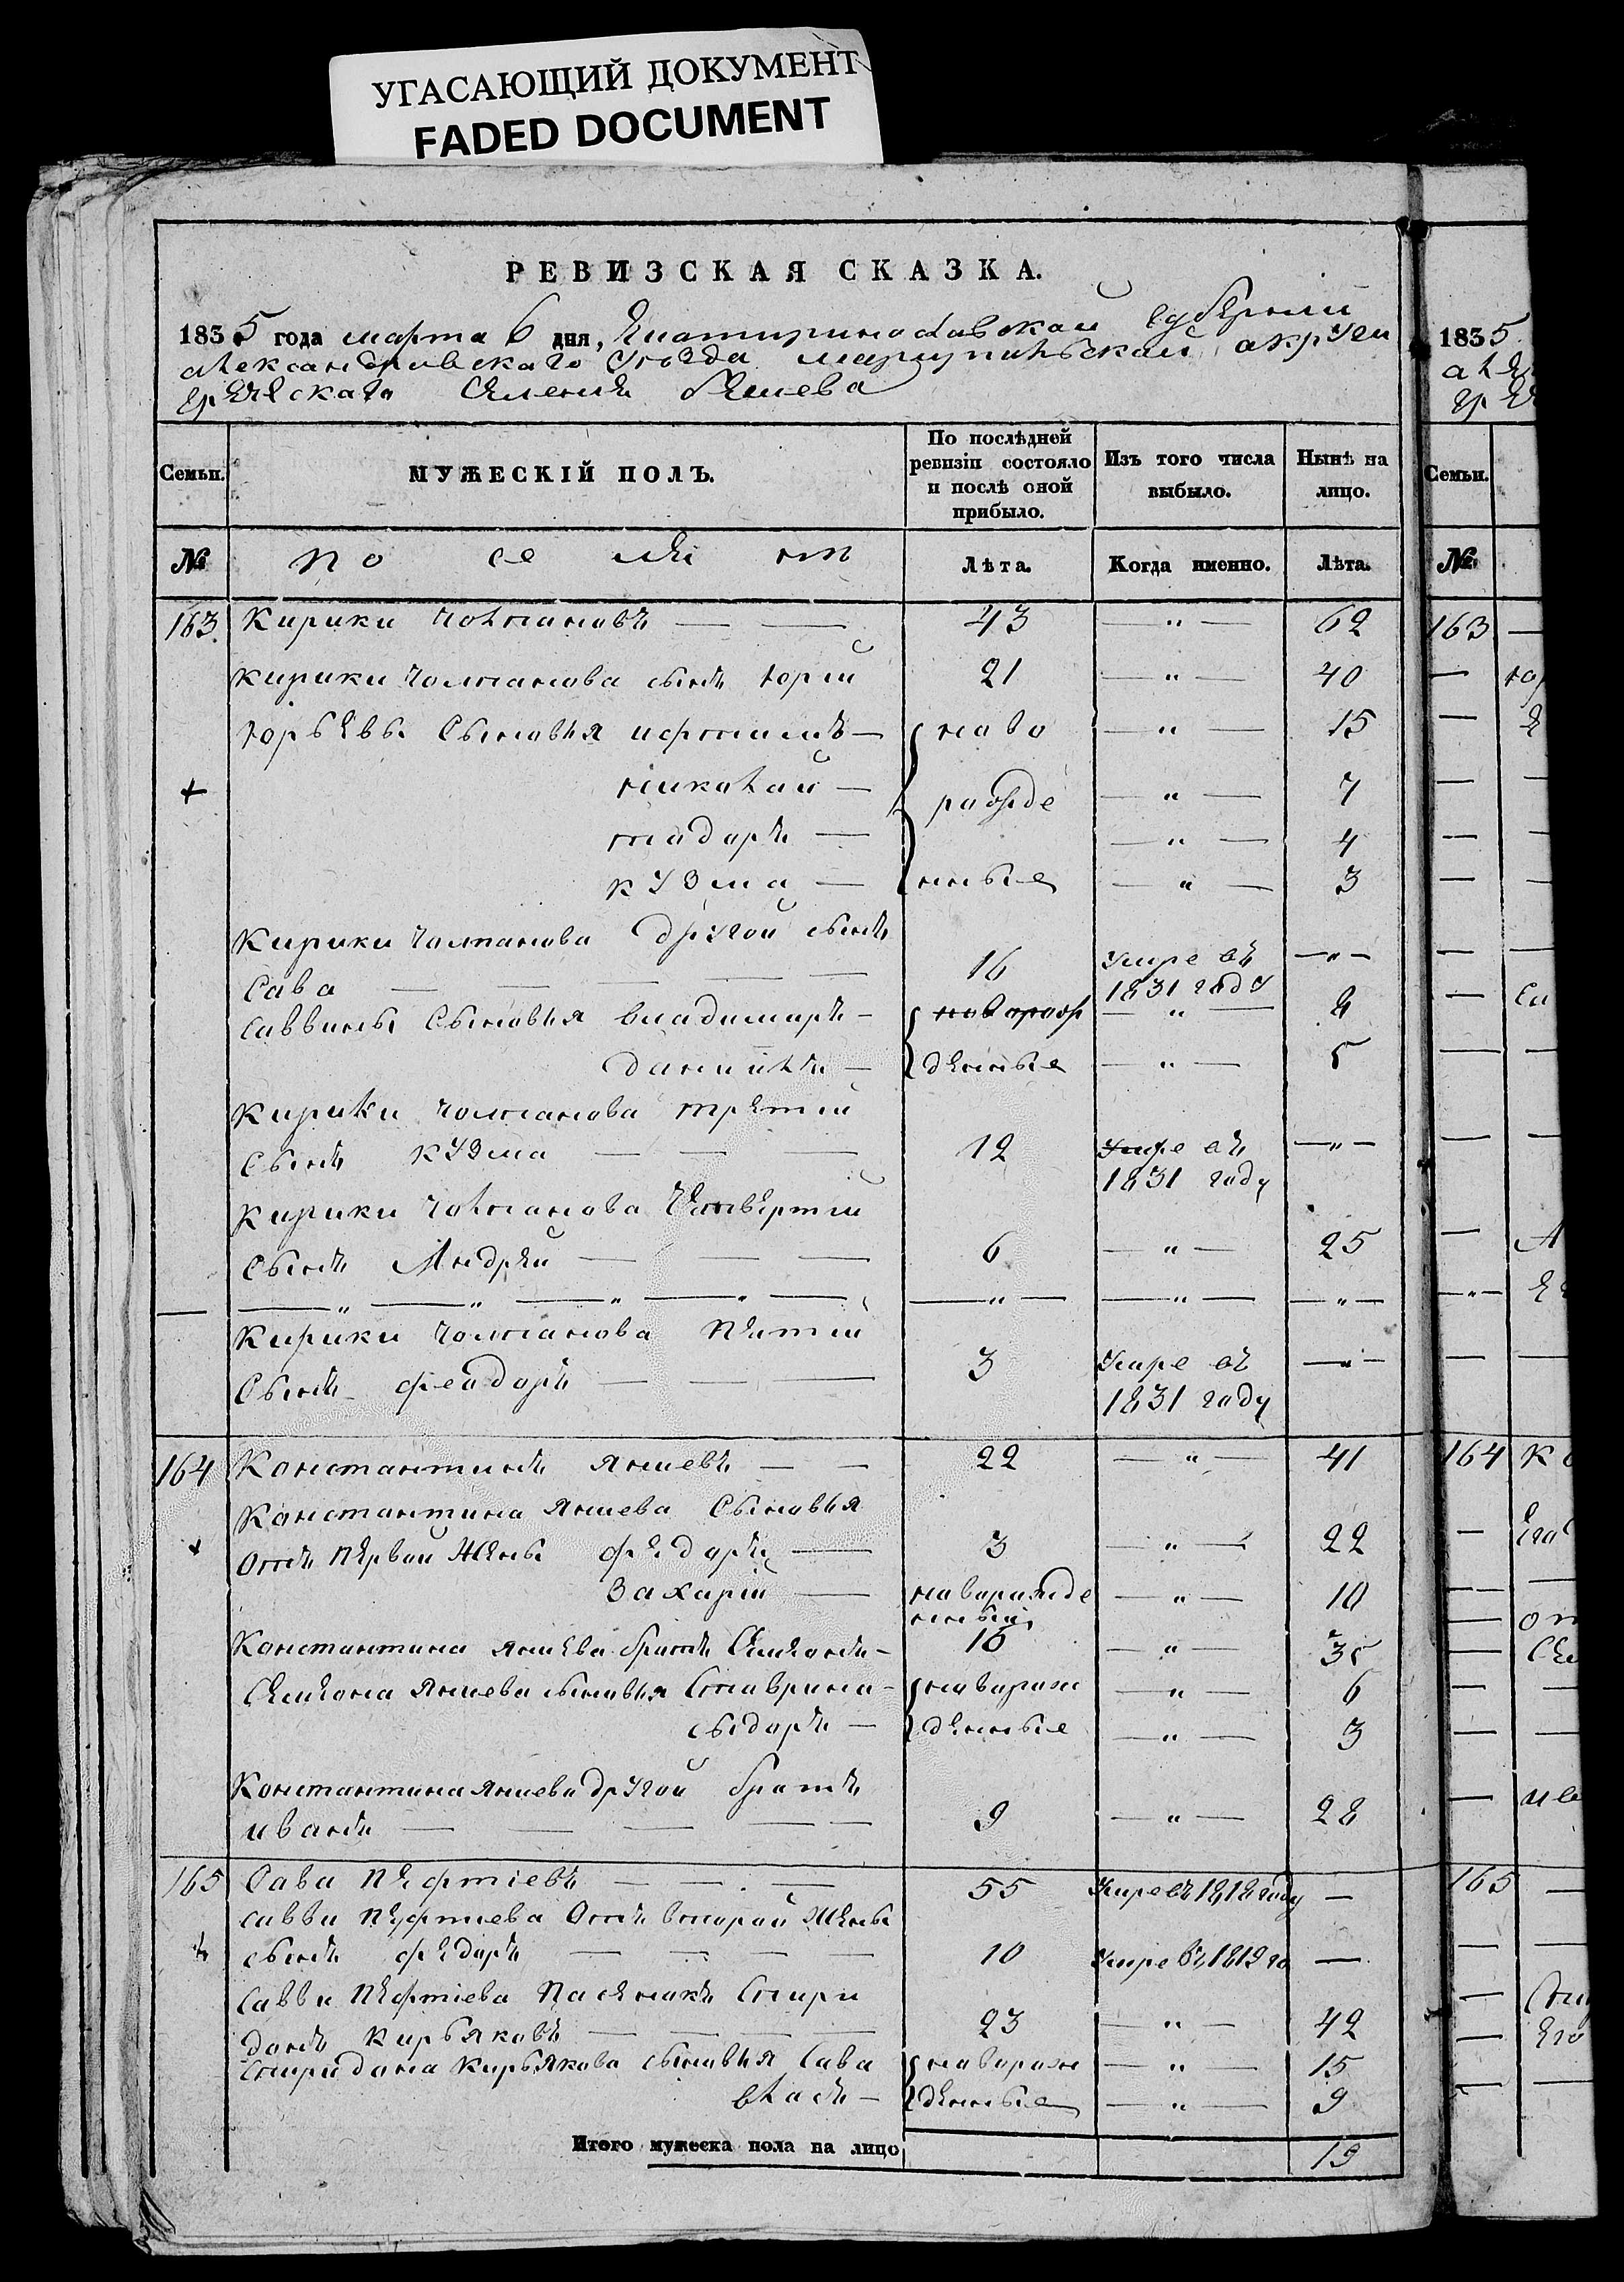 УГАСАЮЩИЙ ДОКУМЕНТ
FADED DOCUMENT
РЕВИЗСКАЯ СКАЗКА.
1835 года марта 6 дня, Екатиринославской губернии
Александровскаго уезда мариупольской округи
греческаго селения бешева
Семьи. МУЖЕСКІЙ ПОЛЪ. По послѣдней ревизіи состояло и послѣ оной прибыло. Изъ того числа выбыло. Нынѣ на лицо.
№ поселянин Лѣта. Когда именно. Лѣта.
163 Кирики Чолпановъ — — 43 — " — 62
Кирики Чолпанова сынъ юрий 21 — " — 40
юрьевы Сыновья — { ново — " — 15
+ николай — рожде — " — 7
тодоръ — — " — 4
кузма — нные — " — 3
Кирики Чолпанова другой сынъ
Сава — — — — 16 Умре въ 1831 году — " —
Саввины Сыновья владимиръ — { новорож — " — 8
даниилъ — денные — " — 5
Кирики Чолпанова третий
Сынъ кузма — — — 12 Умре въ 1831 году — " —
Кирики Чолпанова Четвертий
Сынъ Андрей — — — 6 — " — 25
— — " — " — " — " — — " — — " — — " —
Кирики Чолпанова Пятий
Сынъ феодоръ — — — 3 Умре въ 1831 году — " —
164 Константинъ Янчевъ — — 22 — " — 41
Константина Янчева Сыновья
+ Отъ Первой Жены федоръ — 3 — " — 22
Захарий — новорожденный — " — 10
Константина Янчева братъ Семионъ — 16 — " — 35
Семиона Янчева сыновья Ставрина — { новорож — " — 6
сыдоръ — денные — " — 3
Константина Янчева другой братъ
иванъ — — — — — 9 — " — 28
165 Сава Пефтиевъ — — — 55 Умре въ 1818 году —
Савви Пефтиева Отъ второй Жены
+ сынъ федоръ — — — — 10 Умре въ 1819 го —
Савви Пефтиева Пасенокъ Спири
донъ Кирьяковъ — — — — 23 — " — 42
Спиридона Кирьякова сыновья Сава { новорож — " — 15
власъ — денные — " — 9
Итого мужеска пола на лицо 19
1835
Семьи.
№
163
164
165